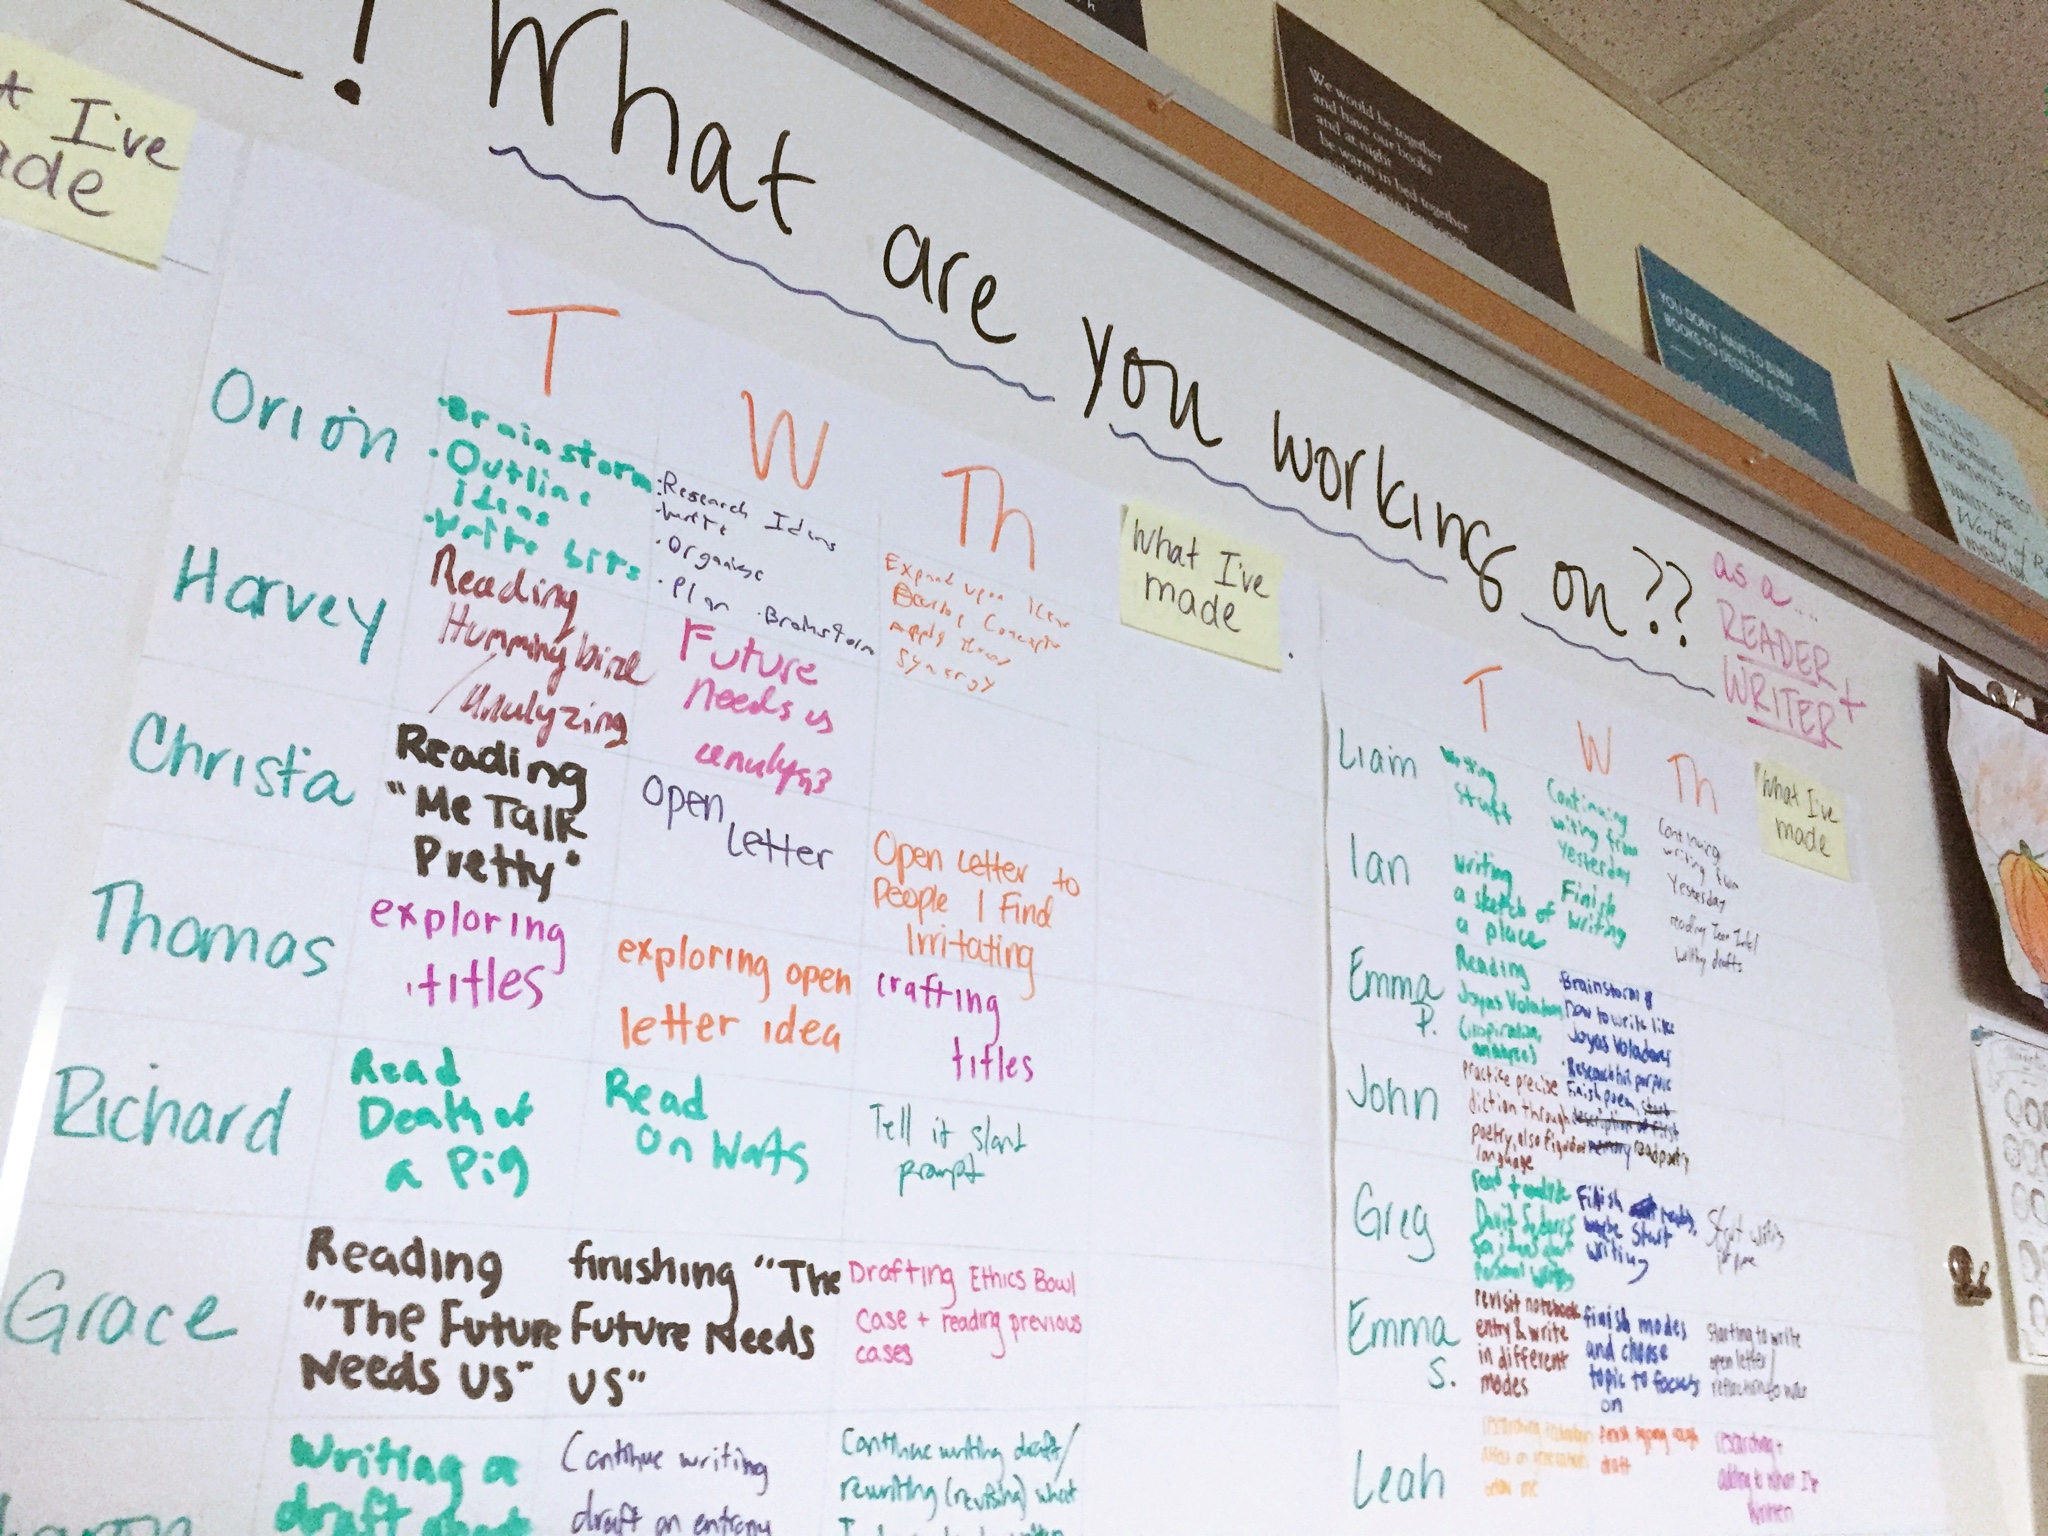 ! What are you working on??
as a....
READER +
WRITER
I've
We would be together
and have our books
and at night
be warm in bed together
YOU DON'T HAVE TO BURN
BOOKS TO DESTROY A CULTURE
T W Th
What I've
made
Orion
• Brainstorm
• Outline
Ideas
• Write bits
• Research Ideas
• Write
• Organise
• Plan • Brainstorm
Expand upon
Apply
Synergy
Harvey
Reading
Hummingbird
/Analyzing
Future
needs us
Christa
Reading
"Me Talk
Pretty"
Open
Letter
Open Letter to
People I Find
Irritating
Thomas
exploring
titles
exploring open
letter idea
crafting
titles
Richard
Read
Death of
a Pig
Read
On Warts
Tell it slant
prompt
Grace
Reading
"The Future
Needs Us"
finishing "The
Future Needs
US"
Drafting Ethics Bowl
case + reading previous
cases
Writing a
draft about
Continue writing
draft on entropy
Continue writing draft/
rewriting (revising) what
T W Th
What I've
made
Liam
Writing
stuff
Continuing
writing from
Yesterday
Continuing
writing from
Yesterday
Ian
Writing
a sketch of
a place
Finish
writing
reading
drafts
Emma
P.
Reading
Joyas Voladoras
(inspiration,
analyze)
Brainstorm
how to write like
Joyas Voladoras
• Research
John
practice precise
diction through
poetry, also
language
Finish poem, start
description of first
memory read poetry
Greg
read + analyze
David Sedaris
personal writing
Finish
maybe start
writing
Start writing
Emma
S.
revisit notebook
entry & write
in different
modes
finish modes
and choose
topic to focus
on
starting to write
open letter/
reflection to
Leah
finish typing rough
draft
researching +
adding to what I've
written